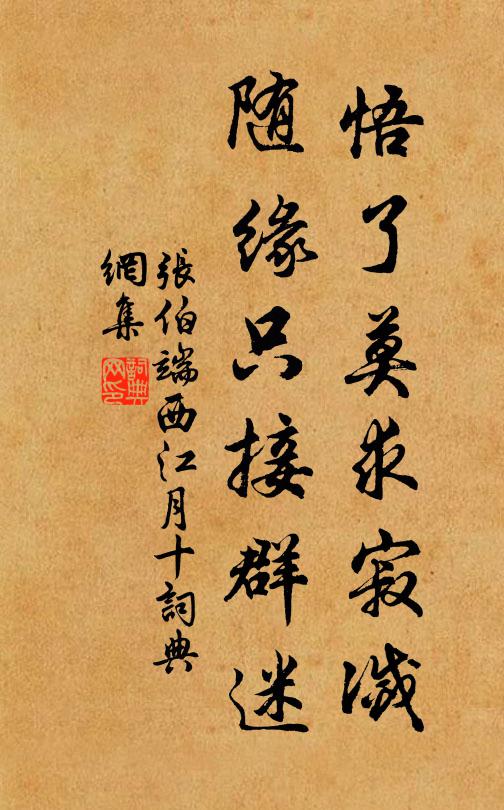 悟了莫求寂滅
随緣只接群迷
張伯端西江月十詞典
網集
詞典
网印